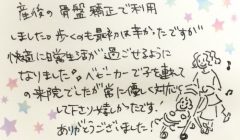 産後の骨盤矯正で利用
しました。歩くのも最初は辛かったですが
快適に日常生活が過ごせるように
なりました。ベビーカーで子も連れて
の来院でしたが常に優しく対応
して下さり嬉しかったです!
ありがとうございました!